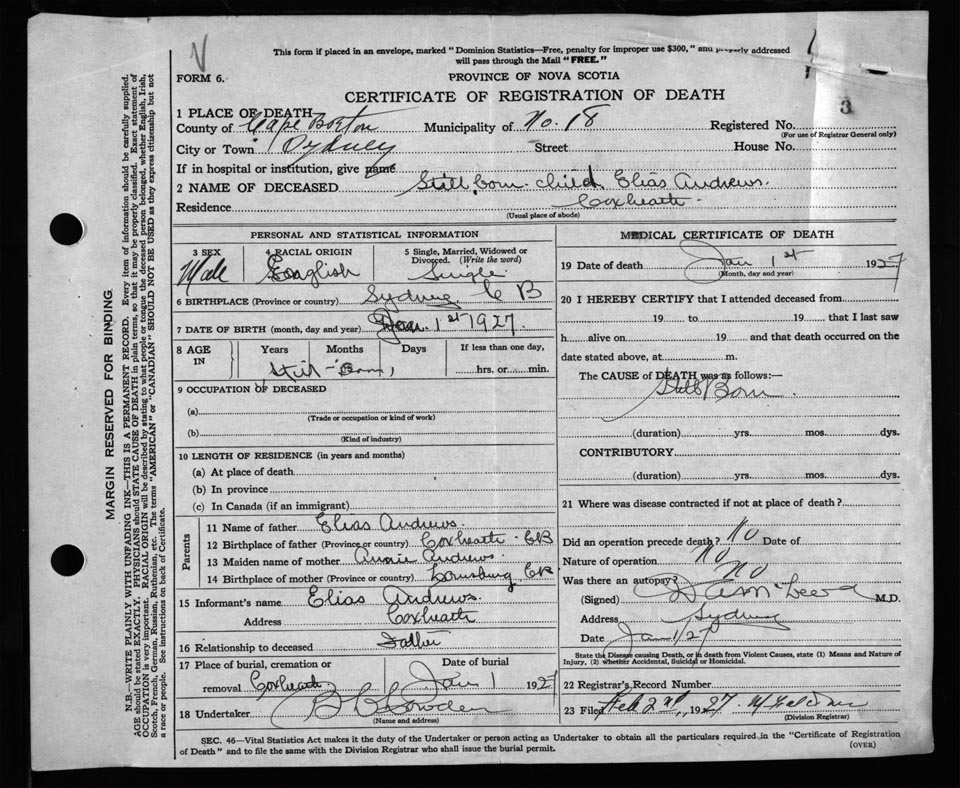 This form if placed in an envelope, marked "Dominion Statistics—Free, penalty for improper use $300," and properly addressed
will pass through the Mail "FREE."
FORM 6.
PROVINCE OF NOVA SCOTIA
CERTIFICATE OF REGISTRATION OF DEATH
3
1 PLACE OF DEATH
County of Cape Breton Municipality of No. 18 Registered No.
(For use of Registrar General only)
City or Town Sydney Street House No.
If in hospital or institution, give name
2 NAME OF DECEASED Still born child Elias Andrews.
Residence Coxheath
(Usual place of abode)
PERSONAL AND STATISTICAL INFORMATION
3 SEX Male
4 RACIAL ORIGIN English
5 Single, Married, Widowed or Divorced. (Write the word) Single
6 BIRTHPLACE (Province or country) Sydney C B
7 DATE OF BIRTH (month, day and year) Jan. 1st 1927.
8 AGE IN Years Months Days If less than one day,
Still-Born, hrs. or min.
9 OCCUPATION of DECEASED
(a)
(Trade or occupation or kind of work)
(b)
(Kind of industry)
10 LENGTH OF RESIDENCE (in years and months)
(a) At place of death
(b) In province
(c) In Canada (if an immigrant)
Parents
11 Name of father Elias Andrews.
12 Birthplace of father (Province or country) Coxheath CB
13 Maiden name of mother Annie Andrews.
14 Birthplace of mother (Province or country) Louisburg CB
15 Informant's name Elias Andrews.
Address Coxheath
16 Relationship to deceased Father
17 Place of burial, cremation or Date of burial
removal Coxheath Jan 1 1927
18 Undertaker
(Name and address)
MEDICAL CERTIFICATE OF DEATH
19 Date of death Jan 1st 1927
(Month, day and year)
20 I HEREBY CERTIFY that I attended deceased from
19 to 19 that I last saw
h alive on 19 and that death occurred on the
date stated above, at m.
The CAUSE of DEATH was as follows:—
Still Born
(duration) yrs. mos. dys.
CONTRIBUTORY
(duration) yrs. mos. dys.
21 Where was disease contracted if not at place of death?
Did an operation precede death? No Date of
Nature of operation No
Was there an autopsy? No
(Signed) M.D.
Address Sydney
Date Jan 1/27
State the Disease causing Death, or in death from Violent Causes, state (1) Means and Nature of
Injury, (2) whether Accidental, Suicidal or Homicidal.
22 Registrar's Record Number
23 Filed Feb 2nd, 1927
(Division Registrar)
SEC. 46—Vital Statistics Act makes it the duty of the Undertaker or person acting as Undertaker to obtain all the particulars required in the "Certificate of Registration
of Death" and to file the same with the Division Registrar who shall issue the burial permit.
(OVER)
MARGIN RESERVED FOR BINDING
N.B.—WRITE PLAINLY WITH UNFADING INK—THIS IS A PERMANENT RECORD. Every item of information should be carefully supplied.
AGE should be stated EXACTLY. PHYSICIANS should STATE CAUSE OF DEATH in plain terms, so that it may be properly classified. Exact statement of
OCCUPATION is very important. RACIAL ORIGIN will be described by stating to what people or tongue the deceased person belonged, whether English, Irish,
Scotch, French, German, Russian, Ruthenian, etc. The terms "AMERICAN" or "CANADIAN" SHOULD NOT BE USED as they express citizenship but not
a race or people. See instructions on back of Certificate.